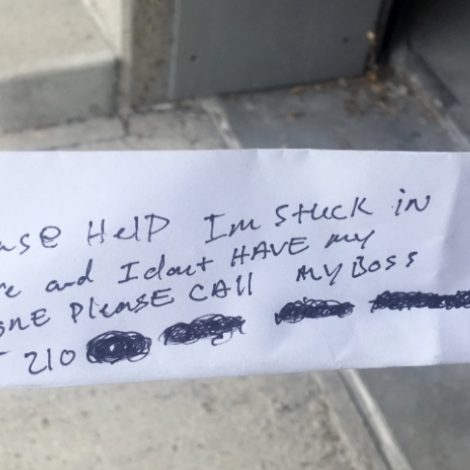 ase Help Im stuck in
e and I dont HAVE my
one Please CAll MY BOSS
210